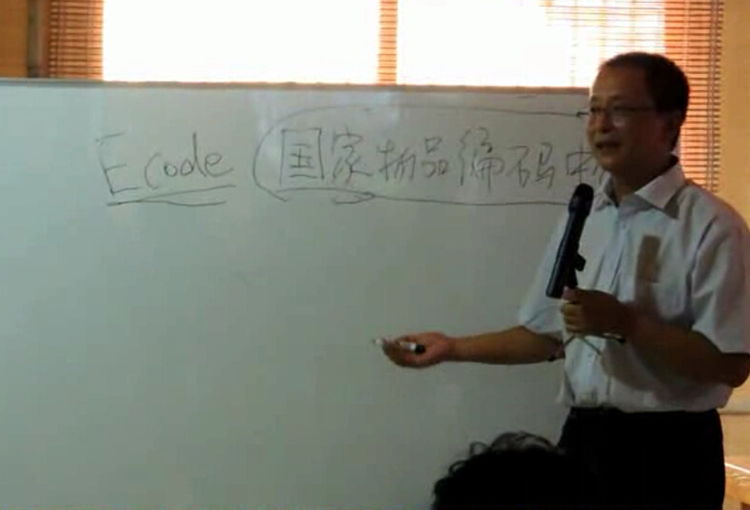 Ecode (国家物品编码中